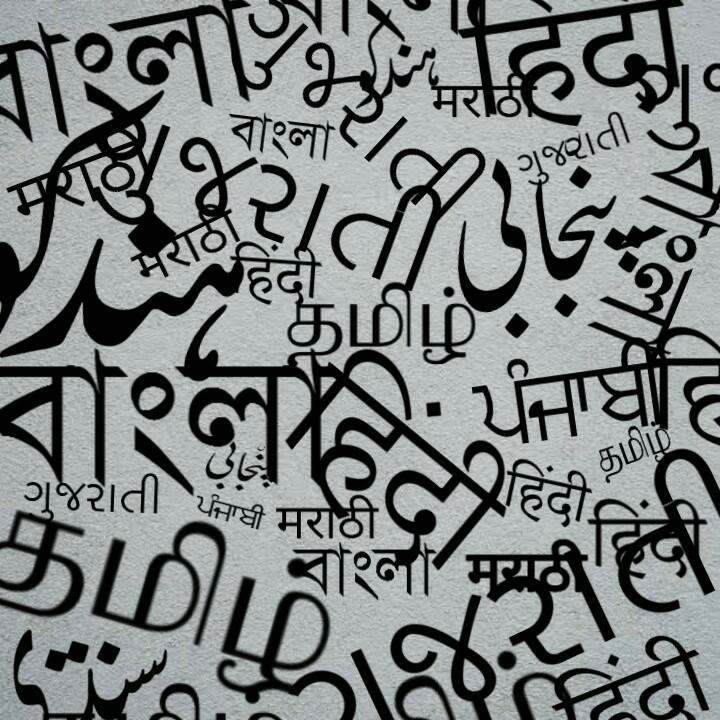 বাংলা
ہندکو
हिंदी
मराठी
বাংলা
ગુજરાતી
मराठी
ગુજરાતી
پنجابی
मराठी
हिंदी
தமிழ்
ہندکو
বাংলা
हिंदी
ਪੰਜਾਬੀ
தமிழ்
پنجابی
ગુજરાતી
ਪੰਜਾਬੀ
मराठी
हिंदी
हिंदी
বাংলা
मराठी
தமிழ்
हिंदी